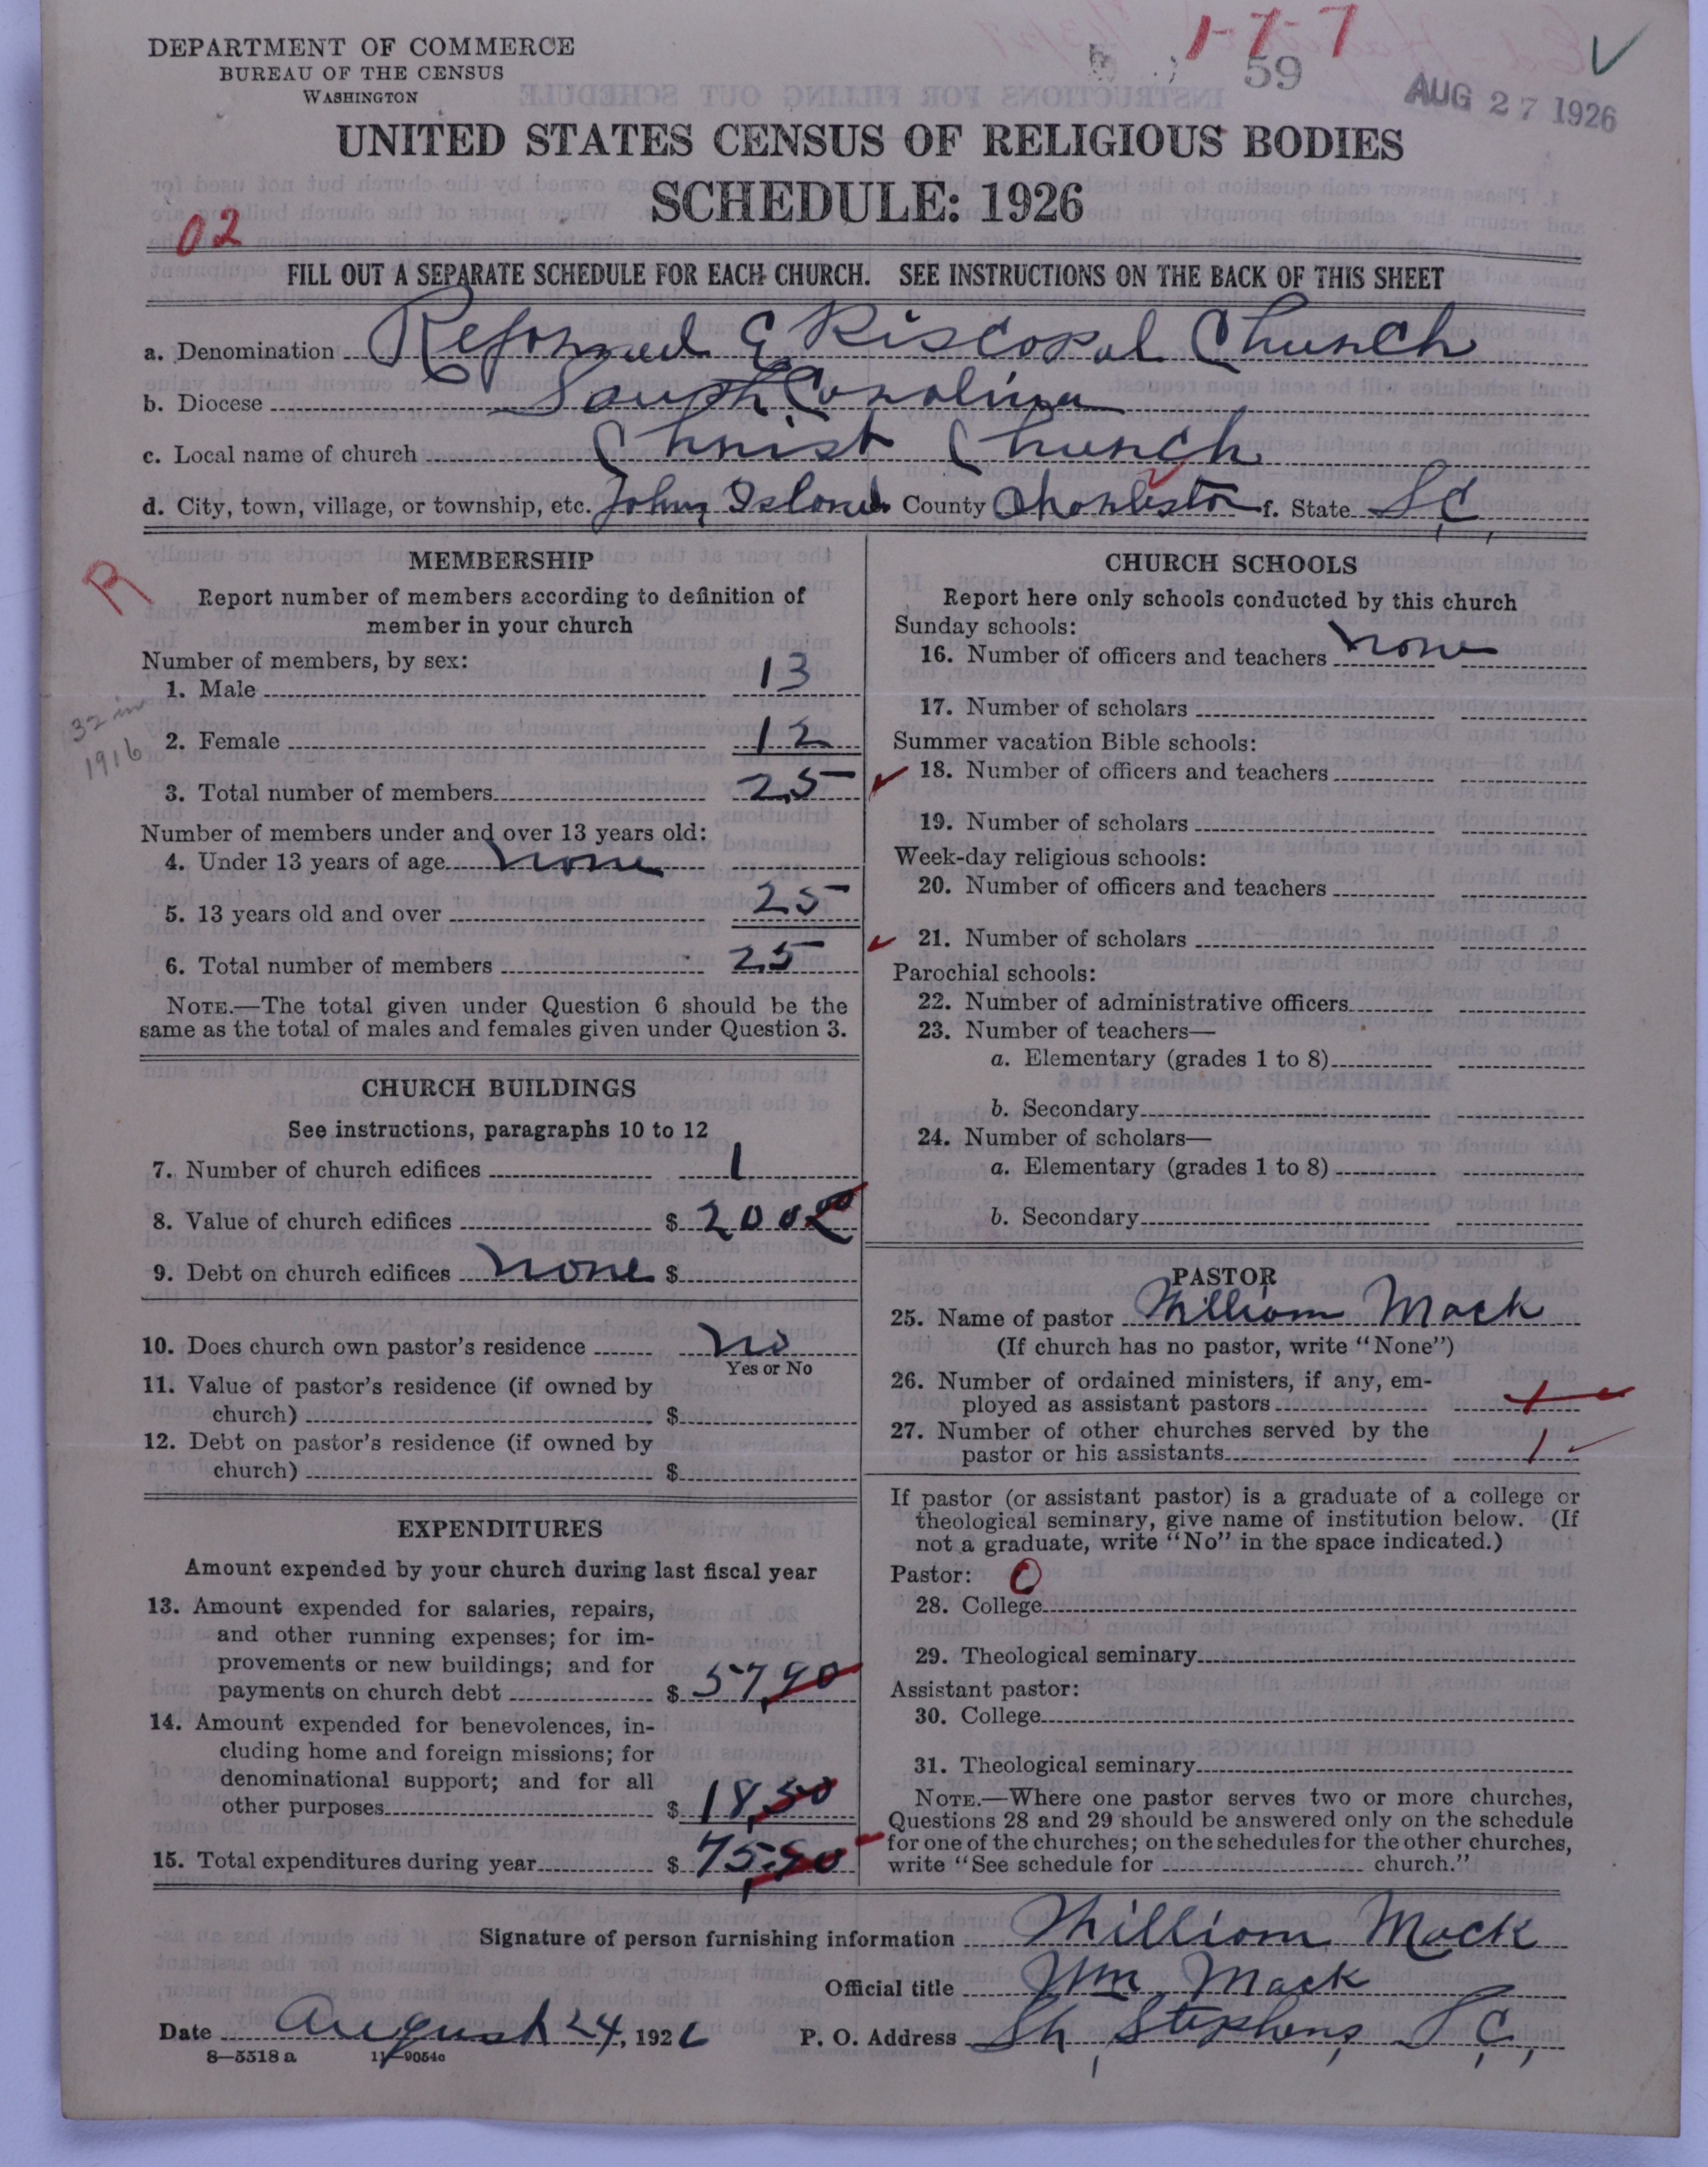 DEPARTMENT OF COMMERCE
BUREAU OF THE CENSUS
WASHINGTON
1-7-7
59
AUG 27 1926
UNITED STATES CENSUS OF RELIGIOUS BODIES
SCHEDULE: 1926
02
FILL OUT A SEPARATE SCHEDULE FOR EACH CHURCH. SEE INSTRUCTIONS ON THE BACK OF THIS SHEET
a. Denomination Reformed Episcopal Church
b. Diocese South Carolina
c. Local name of church Christ Church
d. City, town, village, or township, etc. Johns Island County Charleston f. State S.C.
R
32 in
1916
MEMBERSHIP
Report number of members according to definition of
member in your church
Number of members, by sex:
1. Male 13
2. Female 12
3. Total number of members 25
Number of members under and over 13 years old:
4. Under 13 years of age none
5. 13 years old and over 25
6. Total number of members 25
NOTE.—The total given under Question 6 should be the
same as the total of males and females given under Question 3.
CHURCH BUILDINGS
See instructions, paragraphs 10 to 12
7. Number of church edifices 1
8. Value of church edifices $ 200
9. Debt on church edifices none $
10. Does church own pastor's residence no
Yes or No
11. Value of pastor's residence (if owned by
church) $
12. Debt on pastor's residence (if owned by
church) $
EXPENDITURES
Amount expended by your church during last fiscal year
13. Amount expended for salaries, repairs,
and other running expenses; for im-
provements or new buildings; and for
payments on church debt $ 57,90
14. Amount expended for benevolences, in-
cluding home and foreign missions; for
denominational support; and for all
other purposes $ 18,50
15. Total expenditures during year $ 75,50
CHURCH SCHOOLS
Report here only schools conducted by this church
Sunday schools:
16. Number of officers and teachers none
17. Number of scholars
Summer vacation Bible schools:
18. Number of officers and teachers
19. Number of scholars
Week-day religious schools:
20. Number of officers and teachers
21. Number of scholars
Parochial schools:
22. Number of administrative officers
23. Number of teachers—
a. Elementary (grades 1 to 8)
b. Secondary
24. Number of scholars—
a. Elementary (grades 1 to 8)
b. Secondary
PASTOR
25. Name of pastor William Mack
(If church has no pastor, write "None")
26. Number of ordained ministers, if any, em-
ployed as assistant pastors
27. Number of other churches served by the
pastor or his assistants 1
If pastor (or assistant pastor) is a graduate of a college or
theological seminary, give name of institution below. (If
not a graduate, write "No" in the space indicated.)
Pastor: 0
28. College
29. Theological seminary
Assistant pastor:
30. College
31. Theological seminary
NOTE.—Where one pastor serves two or more churches,
Questions 28 and 29 should be answered only on the schedule
for one of the churches; on the schedules for the other churches,
write "See schedule for church."
Signature of person furnishing information William Mack
Official title Wm Mack
Date August 24, 1926 P. O. Address St. Stephens, S.C.,
8—5518 a 11—9054c